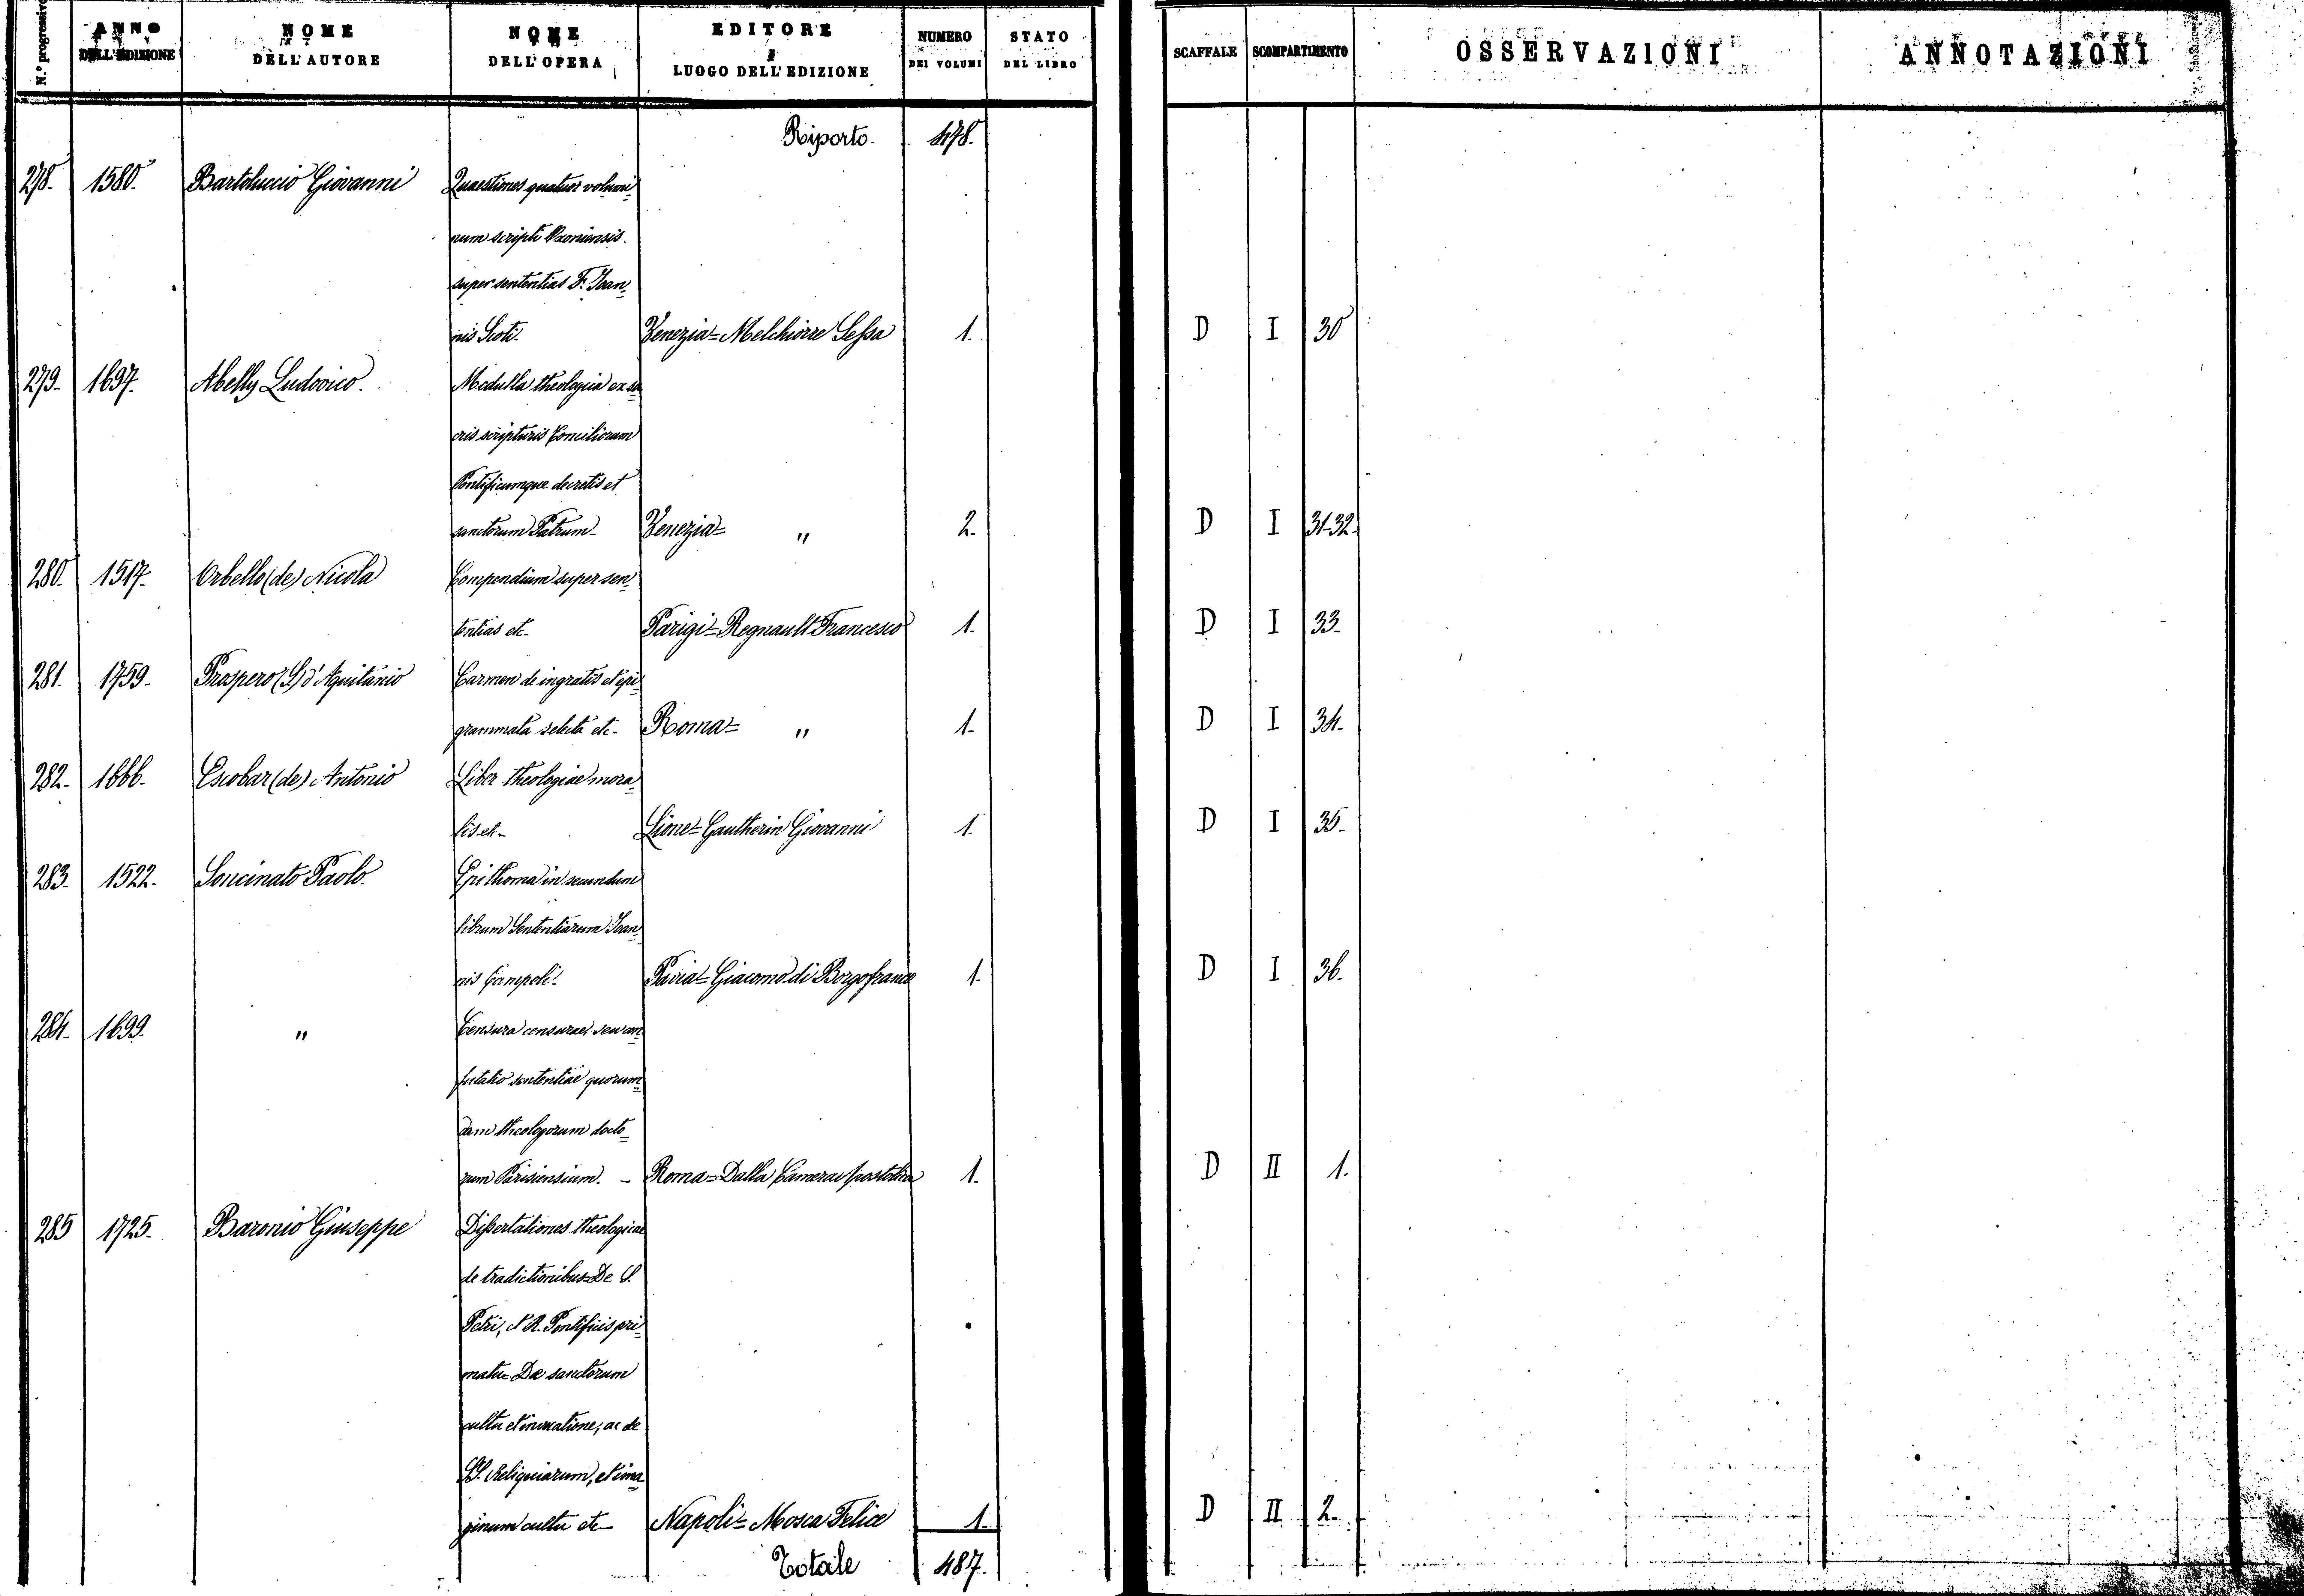 N.º progressivo
ANNO DELL'EDIZIONE
NOME DELL'AUTORE
NOME DELL'OPERA
EDITORE E LUOGO DELL'EDIZIONE
NUMERO DEI VOLUMI
STATO DEL LIBRO
SCAFFALE
SCOMPARTIMENTO
OSSERVAZIONI
ANNOTAZIONI
Riporto. 478.
278. 1580. Bartoluccio Giovanni Quaestiones quatuor volumi-
num scripti Oxoniensis
super sententias F. Ioan-
nis Scoti. Venezia = Melchiorre Sessa 1. D I 30
279. 1697. Abelly Ludovico. Medulla theologica ex sa
cris scripturis Conciliorum
Pontificumque decretis et
sanctorum Patrum - Venezia = " 2. D I 31-32.
280. 1517. Orbello (de) Nicola Compendium super sen-
tentias etc. Parigi = Regnault Francesco 1. D I 33.
281. 1759. Prospero (S) d'Aquitanio Carmen de ingratis et epi-
grammata selecta etc. Roma = " 1. D I 34.
282. 1666. Escobar (de) Antonio Liber theologiae mora-
lis etc. Lione = Gautherin Giovanni 1. D I 35.
283. 1522. Soncinato Paolo. Epithoma in secundum
librum Sententiarum Ioan-
nis Campoli. Pavia = Giacomo di Borgofranco 1. D I 36.
284. 1699. " Censura censurae seu con
futatio sententiae quorum=
dam theologorum docto-
rum Parisiensium. - Roma = Dalla Camera Apostolica 1. D II 1.
285 1725. Baronio Giuseppe Dissertationes theologicae
de tradictionibus = De S.
Petri, et R. Pontificis pri-
matu = De sanctorum
cultu et invocatione, ac de
SS. Reliquiarum, et ima-
ginum cultu etc Napoli = Mosca Felice 1. D II 2.
Totale 487.